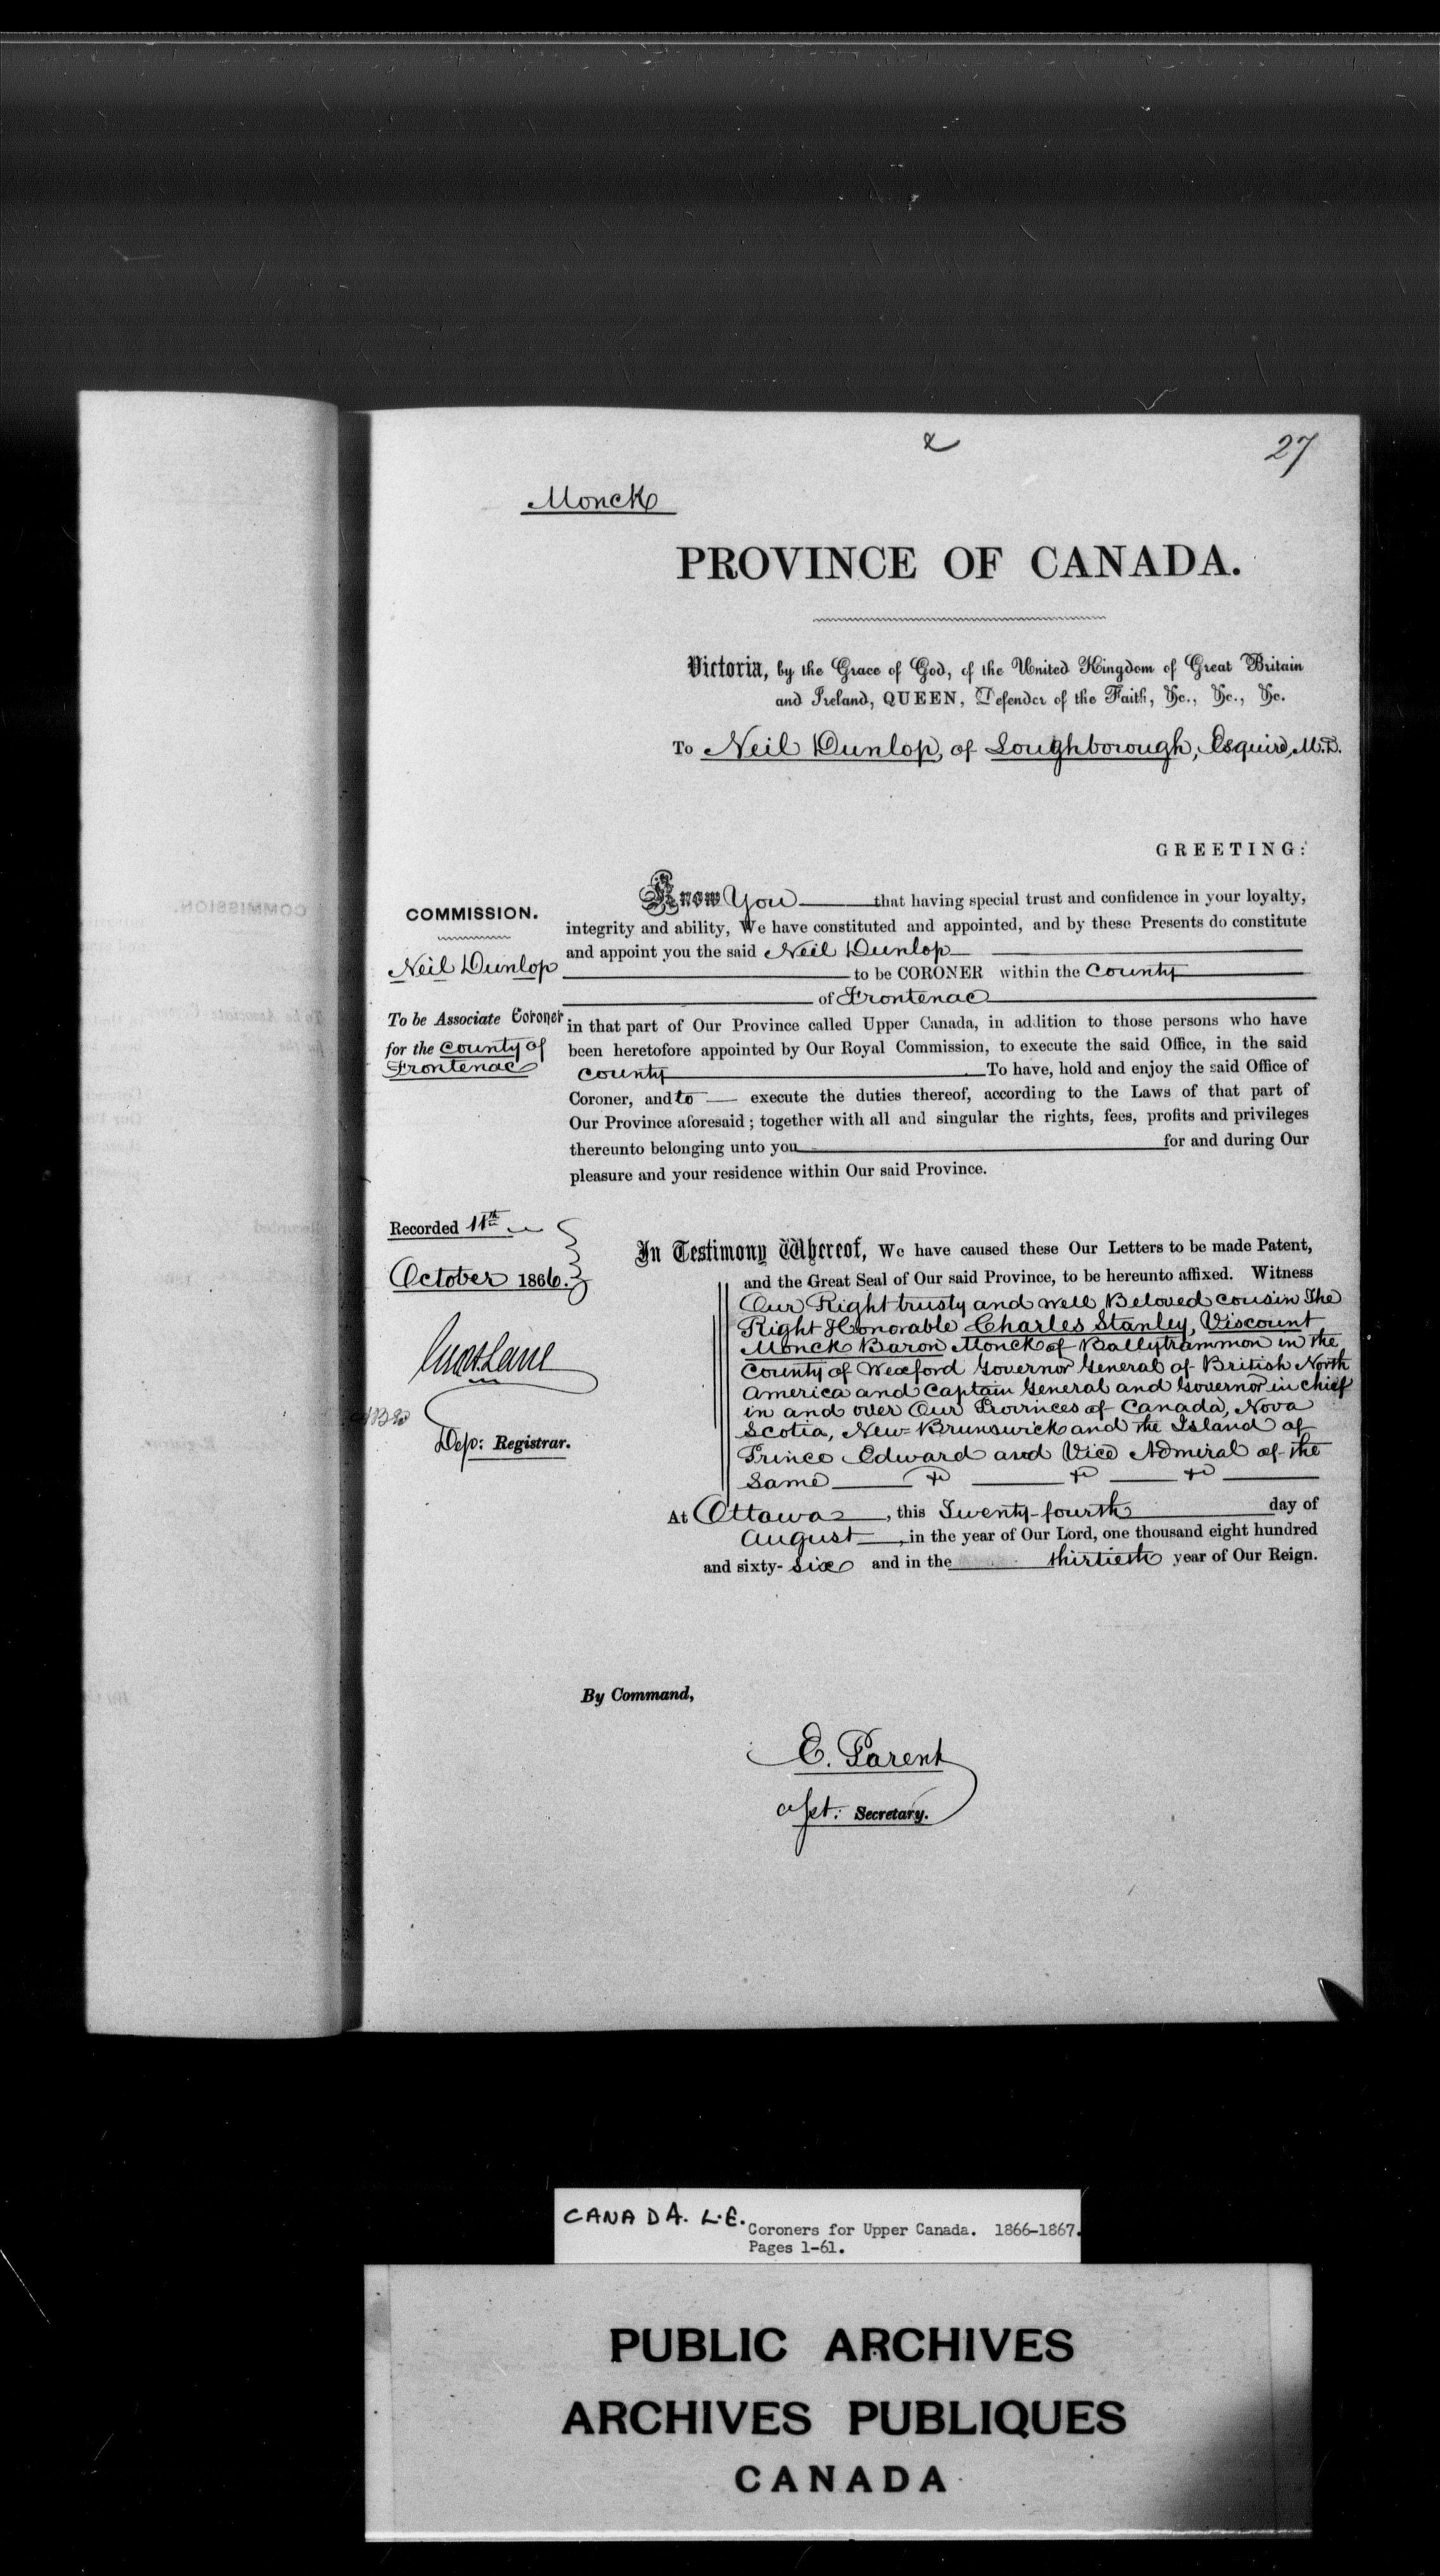 27
Monck
PROVINCE OF CANADA.
Victoria, by the Grace of God, of the United Kingdom of Great Britain
and Ireland, QUEEN, Defender of the Faith, &c., &c., &c.
To Neil Dunlop, of Loughborough, Esquire, M.D.
GREETING:
COMMISSION.
Neil Dunlop
To be Associate Coroner
for the County of
Frontenac
Know You that having special trust and confidence in your loyalty,
integrity and ability, We have constituted and appointed, and by these Presents do constitute
and appoint you the said Neil Dunlop
to be CORONER within the County
of Frontenac
in that part of Our Province called Upper Canada, in addition to those persons who have
been heretofore appointed by Our Royal Commission, to execute the said Office, in the said
County To have, hold and enjoy the said Office of
Coroner, and to execute the duties thereof, according to the Laws of that part of
Our Province aforesaid; together with all and singular the rights, fees, profits and privileges
thereunto belonging unto you for and during Our
pleasure and your residence within Our said Province.
Recorded 11th
October 1866.
Dep: Registrar.
In Testimony Whereof, We have caused these Our Letters to be made Patent,
and the Great Seal of Our said Province, to be hereunto affixed. Witness
Our Right trusty and well Beloved cousin The
Right Honorable Charles Stanley, Viscount
Monck Baron Monck of Ballytrammon in the
County of Wexford Governor General of British North
America and Captain General and Governor in chief
in and over Our Provinces of Canada, Nova
Scotia, New-Brunswick and the Island of
Prince Edward and Vice Admiral of the
Same
At Ottawa, this Twenty-fourth day of
August, in the year of Our Lord, one thousand eight hundred
and sixty-six and in the thirtieth year of Our Reign.
By Command,
E. Parent
Asst: Secretary.
CANADA. L.E.
Coroners for Upper Canada. 1866-1867.
Pages 1-61.
PUBLIC ARCHIVES
ARCHIVES PUBLIQUES
CANADA